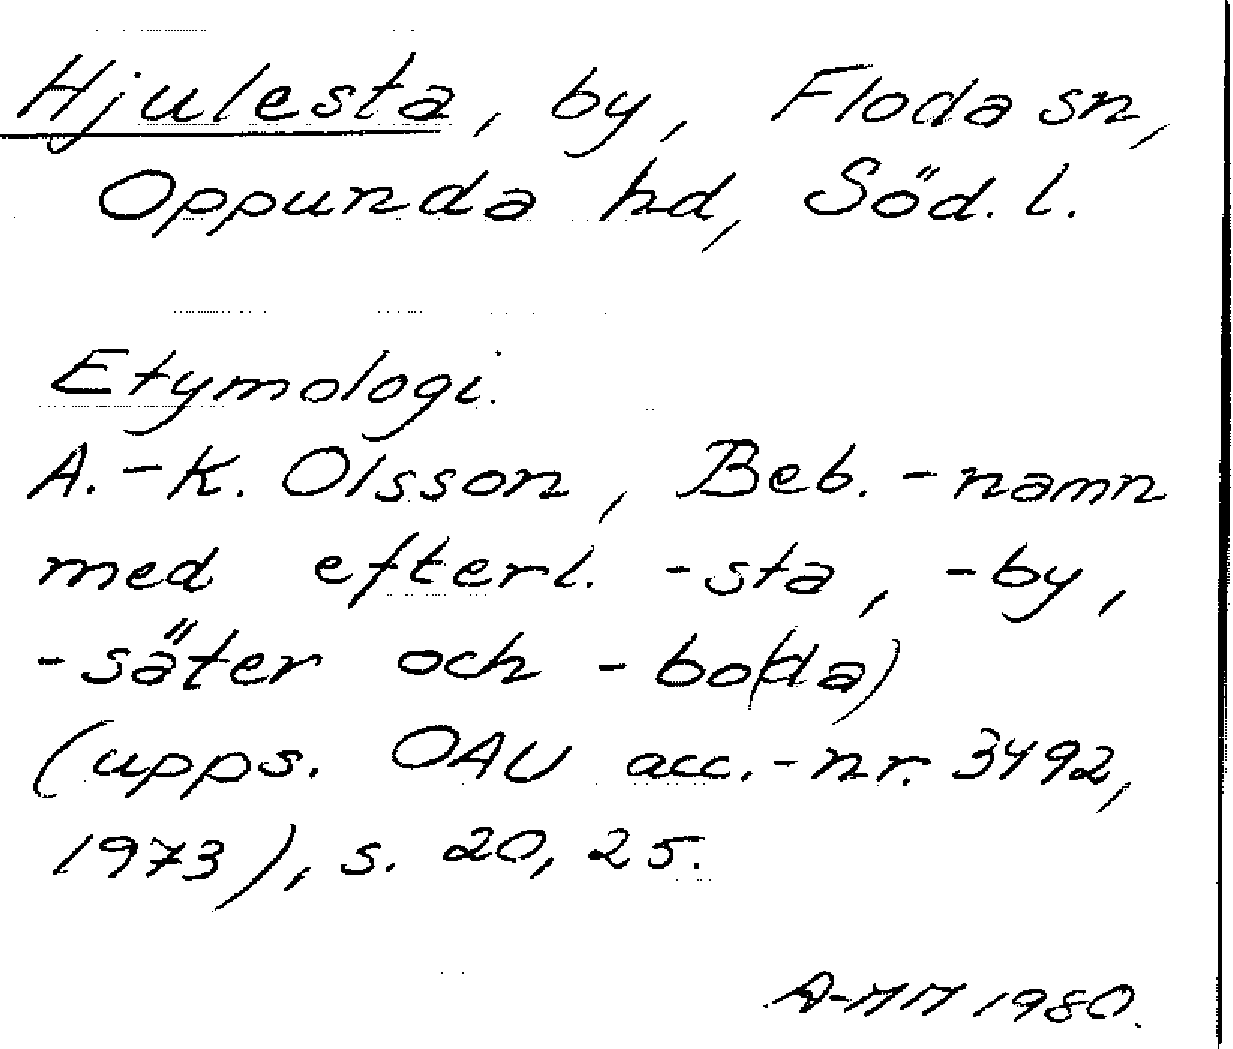 Hjulesta, by, Floda sn,
Oppunda hd, Söd. l.
Etymologi.
A.-K. Olsson, Beb.-namn
med efterl. -sta, -by,
-säter och -bo(da)
(upps. OAU acc.-nr. 3492,
1973), s. 20, 25.
A-MM 1980.